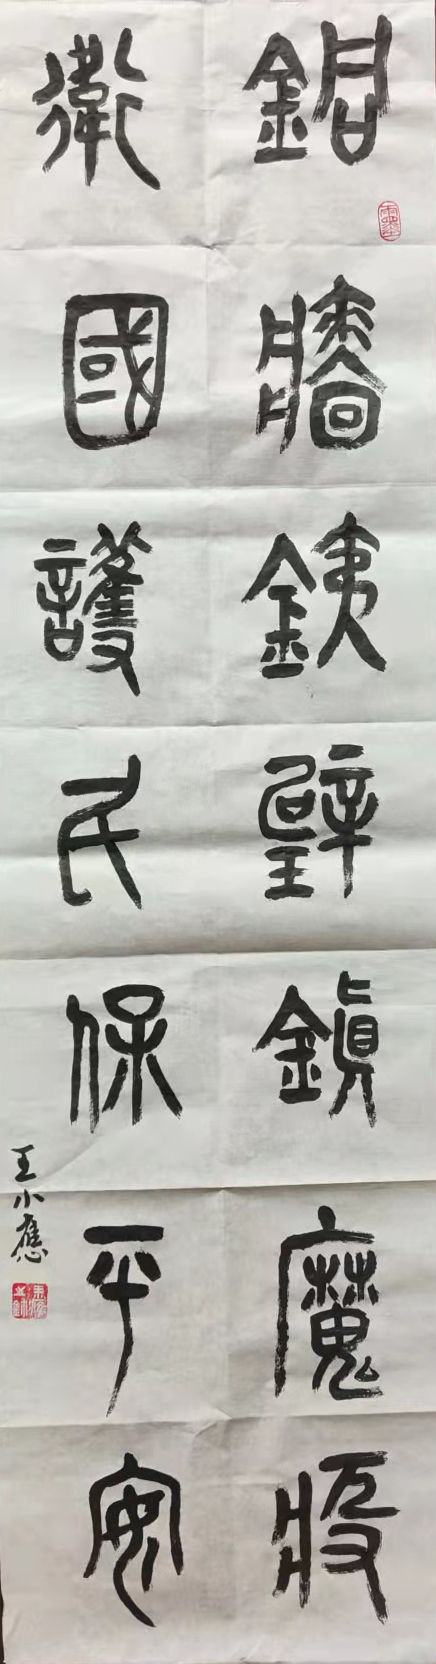 銅牆銕壁鎮魔疫
衛國護民保平安
王小應